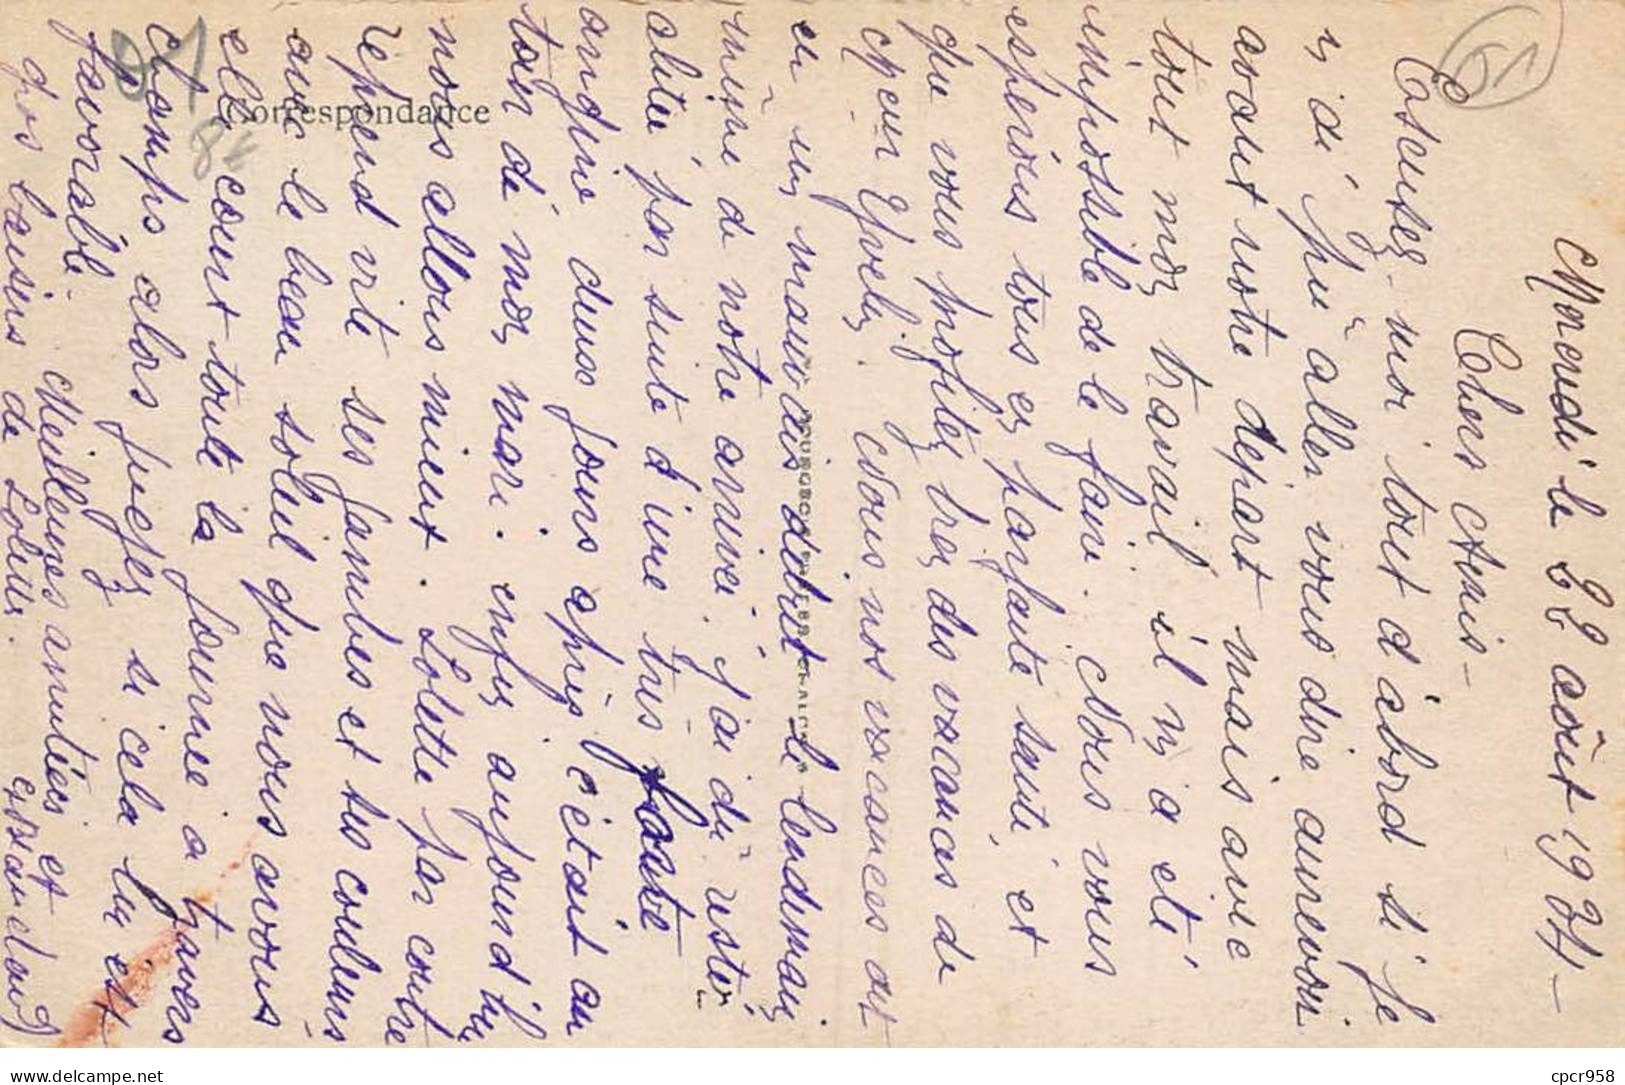 Mercredi le 22 août 1934 -
Chers Amis -
Excusez-moi tout d'abord si je
n'ai pu aller vous dire aurevoir
avant notre départ mais avec
tout mon travail il n'a été
impossible de le faire. Nous vous
espérons tous en parfaite santé, et
que vous profitez bien des vacances de
Yvelin. Nous nos vacances ont
eu un mauvais début le lendemain
même de notre arrivée. J'ai dû rester
alitée par suite d'une très forte
angine deux jours après c'était au
tour de mon mari. enfin aujourd'hui
nous allons mieux. Lolette par contre
répend vite ses jambes et ses couleurs
avec le beau soleil que nous avons
elle court toute la journée à travers
champs alors jugez si cela lui est
favorable. Meilleures amitiés et
gros baisers de Lolette.
Correspondance
cpcr958